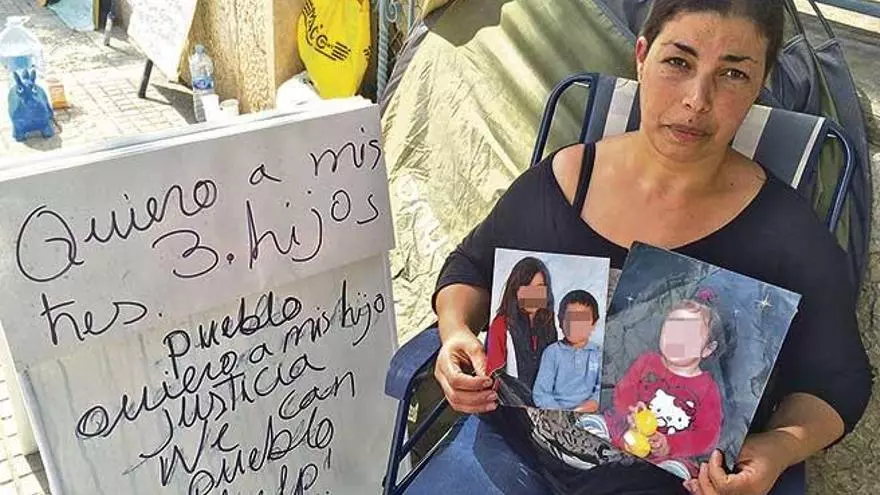 Quiero a mis
3. hijos
tres.
pueblo
quiero a mis hijo
justicia
We can
pueblo